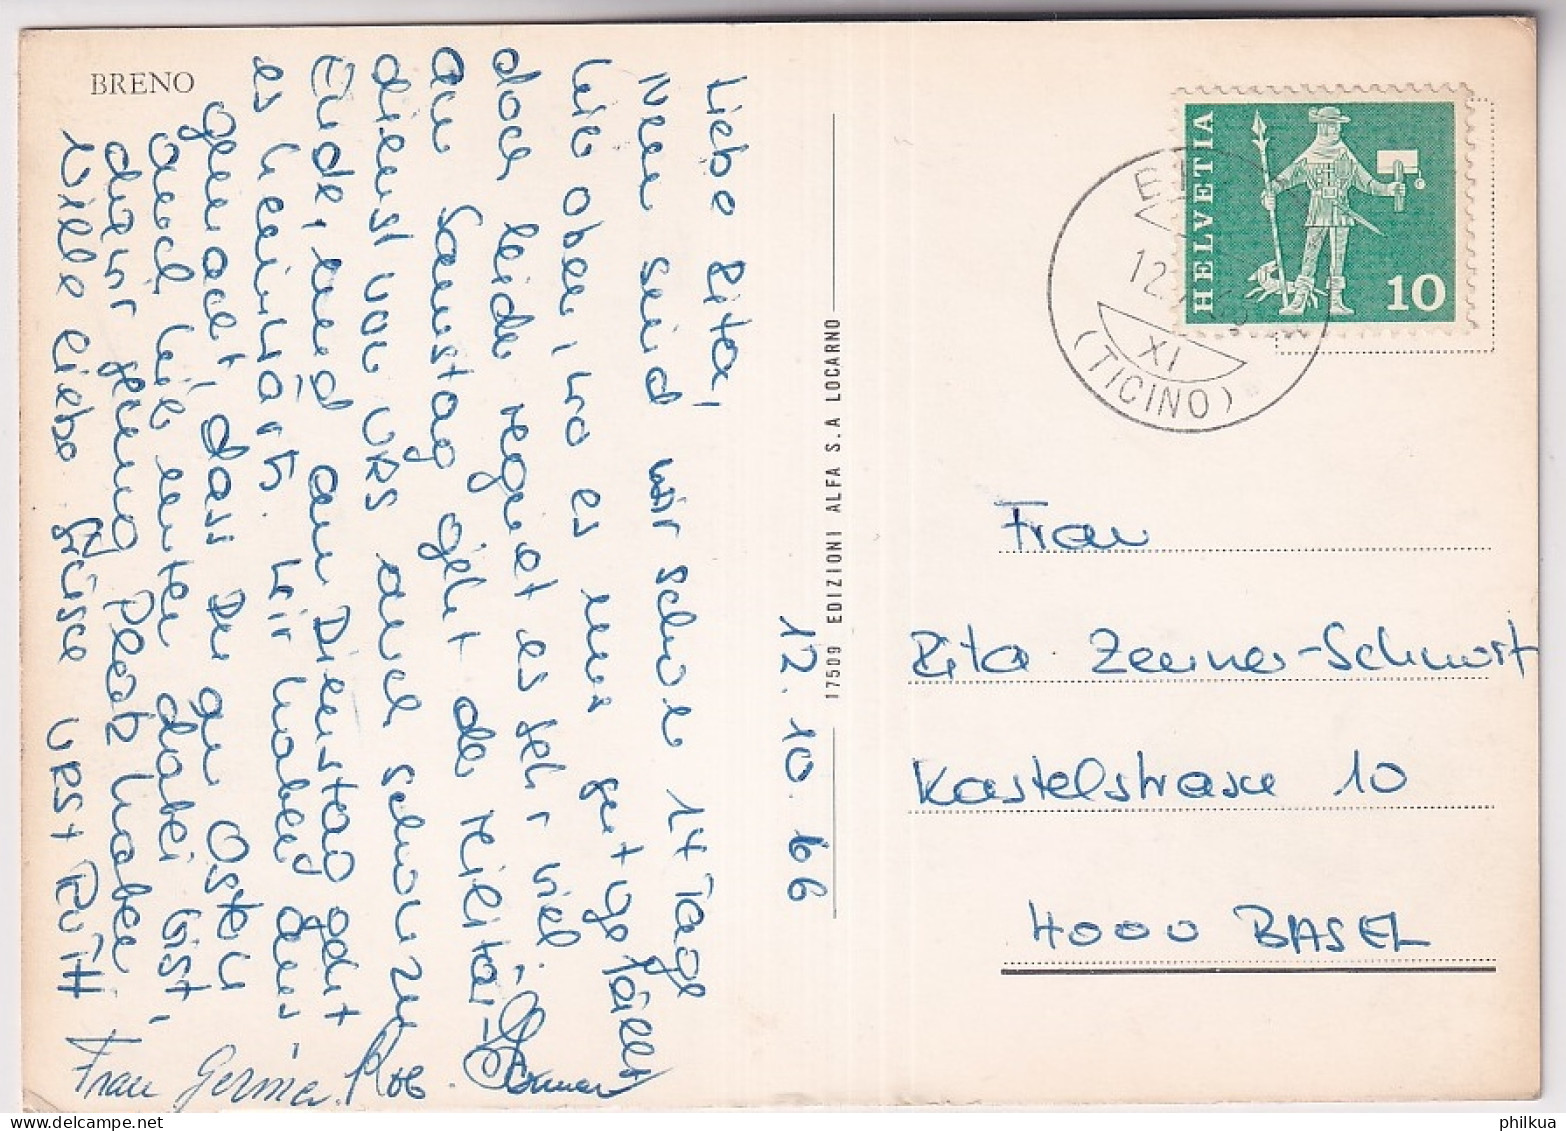 BRENO
Liebe Rita,
Nun sind wir schon 14 Tage
hier oben, wo es uns gut gefällt
doch leider regnet es sehr viel.
am Samstag geht der Militär-
dienst von URS auch schon zu
Ende, und am Dienstag geht
es heimwärts. Wir haben
gemacht, dass Du an Ostern
auch hie unten dabei bist,
denn genug Platz haben
Viele liebe Grüsse URS + RUTH
Frau Germia.
12.10.66
17509 EDIZIONI ALFA S.A LOCARNO
HELVETIA
10
12.
XI
(TICINO)
Frau
Rita Zeuner-Schwort
Kastelstrasse 10
4000 BASEL
philkua